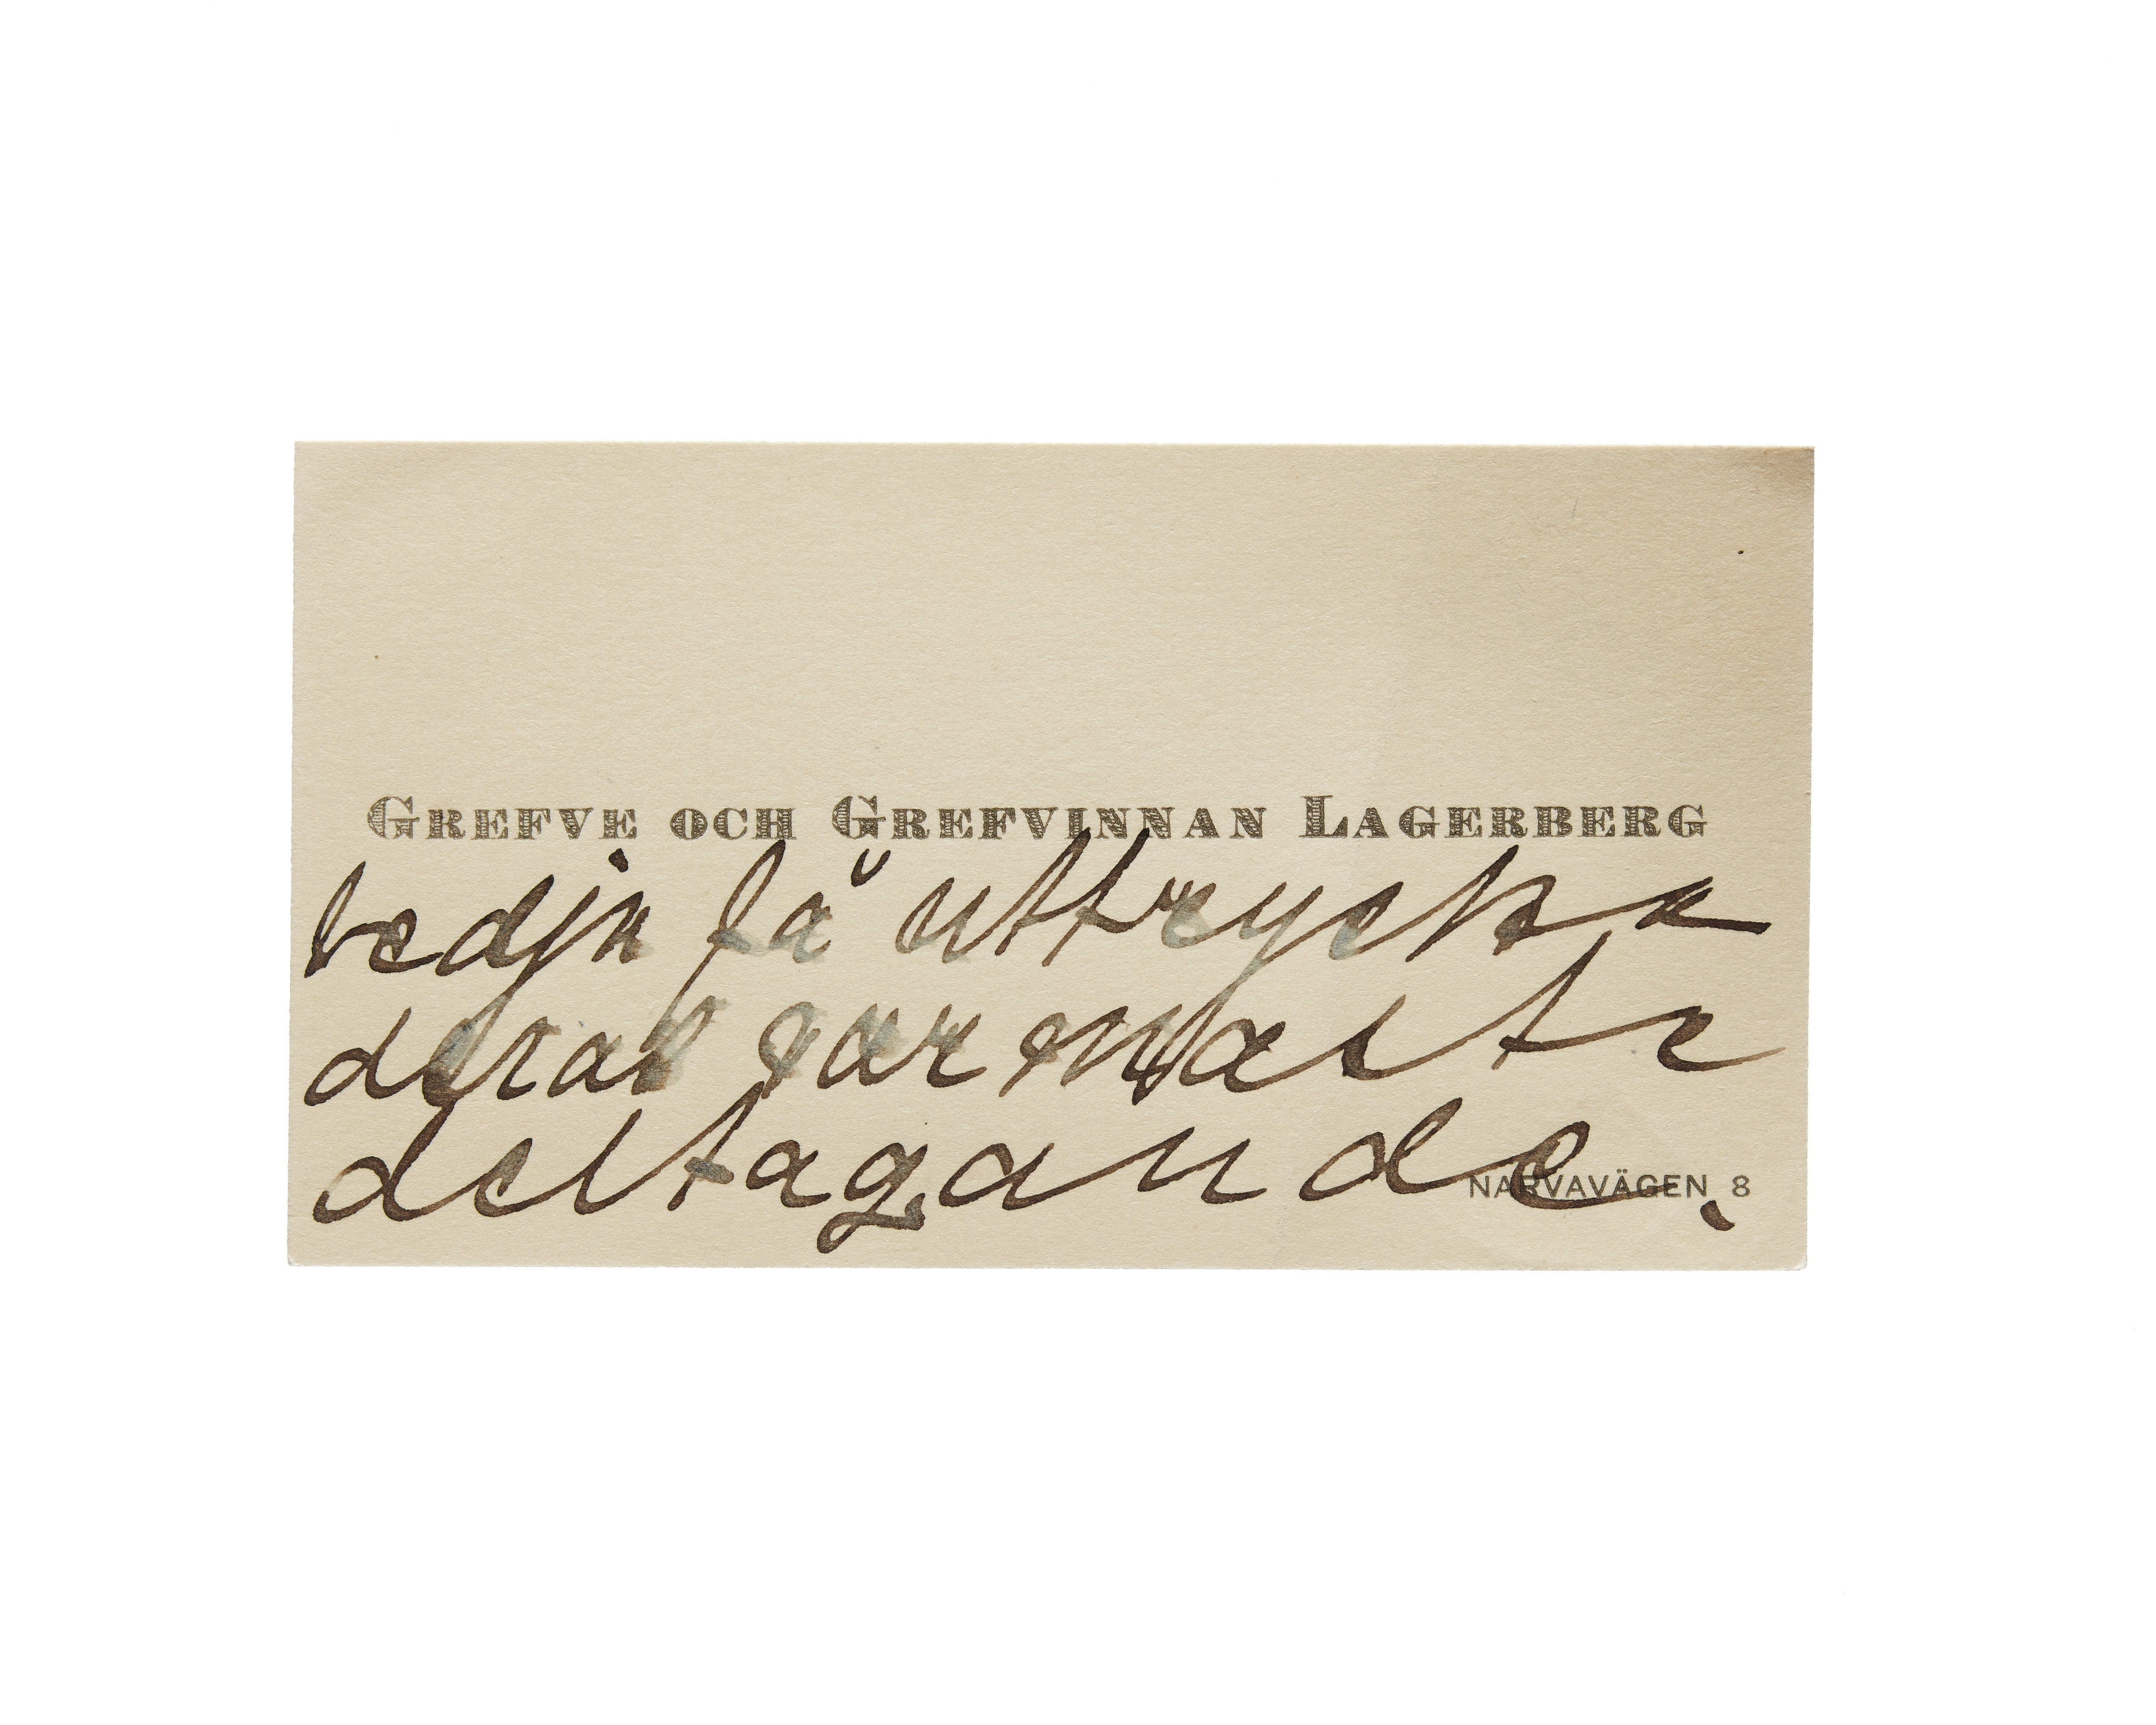 GREFVE OCH GREFVINNAN LAGERBERG
bedja få uttrycka
deras varmaste
deltagande.
NARVAVÄGEN 8